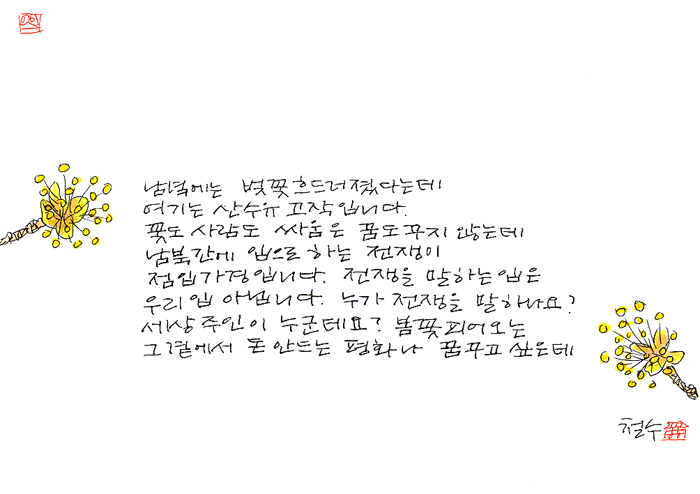 남녘에는 벚꽃 흐드러졌다는데
여기는 산수유 고작입니다.
꽃도 사람도 싸움은 꿈도 꾸지 않는데
남북간에 입으로 하는 전쟁이
점입가경입니다. 전쟁을 말하는 입은
우리 입 아닙니다. 누가 전쟁을 말하나요?
세상 주인이 누군데요? 봄꽃 피어오는
그 곁에서 돈 안드는 평화나 꿈꾸고 싶은데
철수